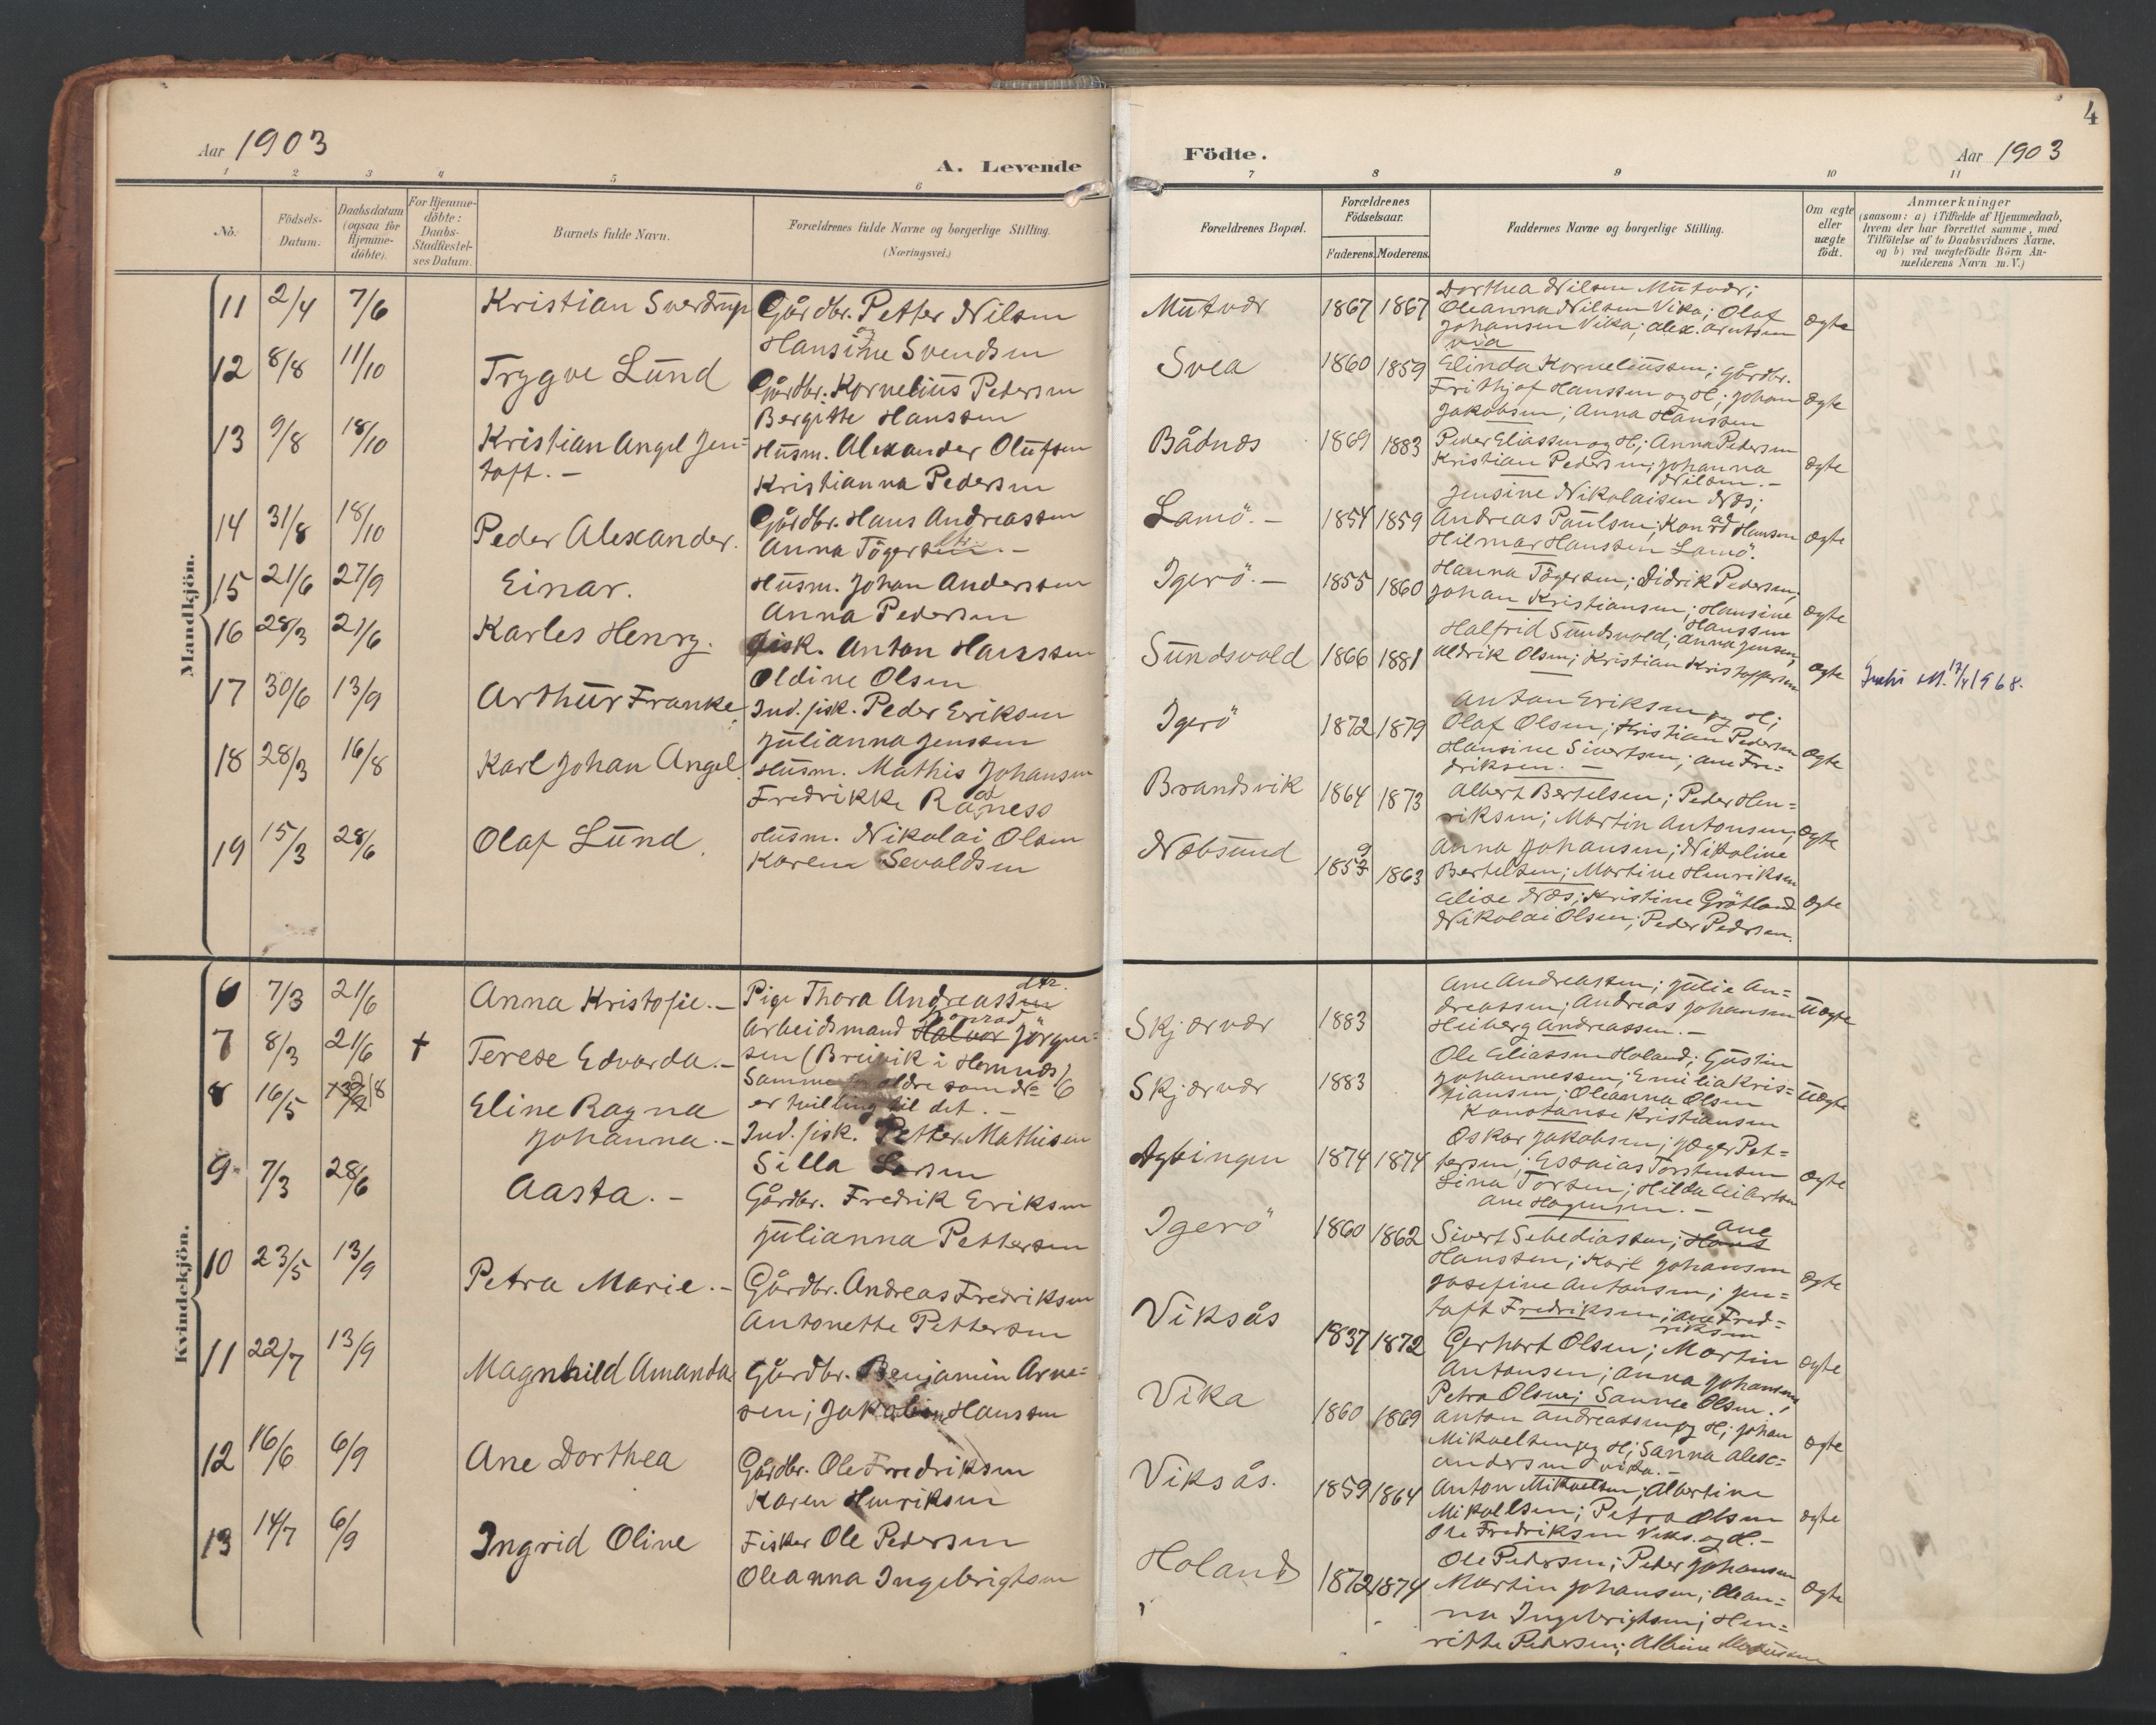 Aar 1903
A. Levende
1 2 3 4 5 6
No. Födsels-Datum. Daabsdatum (ogsaa for Hjemme-döbte). For Hjemme-döbte: Daabs-Stadfæstel-ses Datum. Barnets fulde Navn. Forældrenes fulde Navne og borgerlige Stilling. (Næringsvei.)
Mandkjön.
11 2/4 7/6 Kristian Sverdrup Gårdbr. Petter Nilsen
og
Hansine Svendsen
12 8/8 11/10 Trygve Lund Gårdbr. Kornelius Pedersen
Bergitte Hanssen
13 9/8 18/10 Kristian Angel Jen= Husm. Alexander Olufsen
toft. - Kristianna Pedersen
14 31/8 18/10 Peder Alexander. Gårdbr. Hans Andreassen
Anna Tögersen. -
15 21/6 27/9 Einar. Husm. Johan Anderssen
Anna Pedersen
16 28/3 21/6 Karles Henry. Fisk. Anton Hanssen
Oldine Olsen
17 30/6 13/9 Arthur Franke. Ind. fisk. Peder Eriksen
Julianna Jenssen
18 28/3 16/8 Karl Johan Angel. Husm. Mathis Johansen
Fredrikke Råness
19 15/3 28/6 Olaf Lund. Husm. Nikolai Olsen
Karen Sevaldsen
Kvindekjön.
6 7/3 21/6 Anna Kristofie. - Pige Thora Andreassen dtr.
Konrad
7 8/3 21/6 + Terese Edvarda. - Arbeidsmand Halvor Jörgen=
sen (Breivik i Hemnæs)
Samme forældre som No 6
er tvilling til det. -
8 16/5 Eline Ragna
Johanna. - Ind. fisk. Petter Mathisen
Silla Larsen
9 7/3 28/6 Aasta. - Gårdbr. Fredrik Eriksen
Julianna Pettersen
10 23/5 13/9 Petra Marie. - Gårdbr. Andreas Fredriksen
Antonette Pettersen
11 22/7 13/9 Magnhild Amanda Gårdbr. Benjamin Arne=
sen; Jakobine Hanssen
12 16/6 6/9 Ane Dorthea Gårdbr. Ole Fredriksen
Karen Henriksen
13 14/7 6/9 Ingrid Oline Fisker Ole Pedersen
Oleanna Ingebrigtsen
4
Födte.
Aar 1903
7 8 9 10 11
Forældrenes Bopæl. Forældrenes Födselsaar. Faderens. Moderens. Faddernes Navne og borgerlige Stilling. Om ægte eller uægte födt. Anmærkninger
(saasom: a) i Tilfælde af Hjemmedaab,
hvem der har forrettet samme, med
Tilföielse af to Daabsvidners Navne,
og b) ved uægtefödte Börn An-
melderens Navn m. V.)
Dorthea Nilsen Mutvær;
Mutvær 1867 1867 Oleanna Nilsen Vika; Olaf
Johansen Vika; Alex. Arntsen ægte
Vika
Svea 1860 1859 Elinda Korneliussen; Gårdbr.
Frithjof Hanssen og H; Johan ægte
Jakobsen; Anna Hanssen
Båtnæs 1869 1883 Peder Eliassen og H; Anna Pedersen
Kristian Pedersen; Johanna ægte
Nilsen. -
Jensine Nikolaisen Næs;
Lamö. - 1854 1859 Andreas Paulsen; Konrad Hansen
Hilmar Hanssen Lamö. ægte
Hanna Tögersen; Didrik Pedersen;
Igerö. - 1855 1860 Johan Kristiansen; Hansine ægte
Hanssen
Halfrid Sundsvold; Anna Jensen;
Sundsvold 1866 1881 Aldrik Olsen; Kristian Kristoffersen ægte 17/4 1968.
Anton Eriksen og H;
Igerö 1872 1879 Olaf Olsen; Kristian Pedersen
Hansine Sivertsen; Ane Fre= ægte
driksen. -
Brandsvik 1864 1873 Albert Bertelsen; Peder Hen=
riksen; Martin Antonsen; ægte
Anna Johansen; Nikoline
Næbsund 1859 1863 Bertelsen; Martine Henriksen
Elise Næs; Kristine Grötland ægte
Nikolai Olsen; Peder Pedersen.
Ane Andreassen; Julie An=
Skjærvær 1883 dreassen; Andreas Johansen Uægte
Heiberg Andreassen. -
Ole Eliassen Holand; Gustin
Skjærvær 1883 Johannessen; Emilia Kris=
tiansen; Oleanna Olsen Uægte
Konstanse Kristiansen
Oskar Jakobsen; Jæger Pet=
1874 1874 tersen; Esaias Torstensen ægte
Lina Torsen; Hilda
Ane Hagensen. -
Igerö 1860 1862 Sivert Sebediassen; Hans Ane
Hanssen; Karl Johansen
Josefine Antonsen; Jen= ægte
toft Fredriksen; Ane Fred=
riksen
Viksås 1837 1872 Gerhart Olsen; Martin
Antonsen; Anna Johansen ægte
Petra Olsen; Sanna Olsen.
Vika 1860 1869 Anton Andreassen og H; Johan
Mikaelsen og H; Sanna Alex= ægte
andersen Vika. -
Viksås. 1859 1864 Anton Mikaelsen; Albertine
Mikaelsen; Petra Olsen ægte
Ole Fredriksen Viks. og H. -
Holand 1872 1874 Ole Pedersen; Peder Johansen
Martin Johansen; Olean= ægte
na Ingebrigtsen; Hen=
rikke Pedersen;